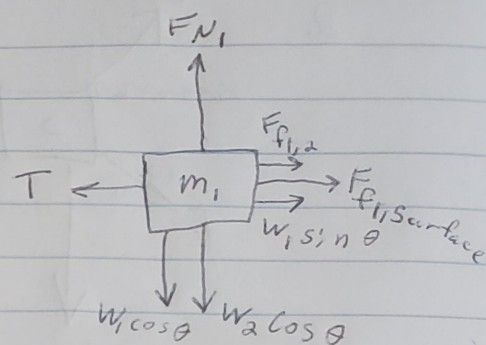 F_N₁
F_f₁,₂
T
m₁
F_f₁,surface
W₁ sin θ
W₁ cos θ
W₂ cos θ